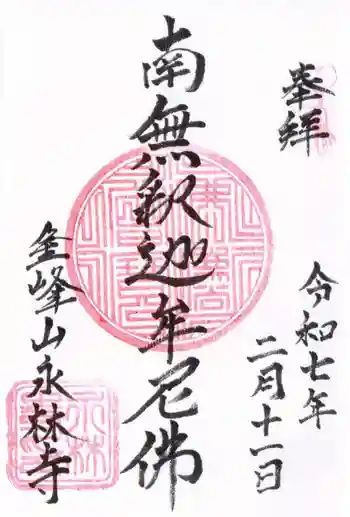 奉拜
令和七年
二月十一日
南無釈迦牟尼佛
金峰山永林寺